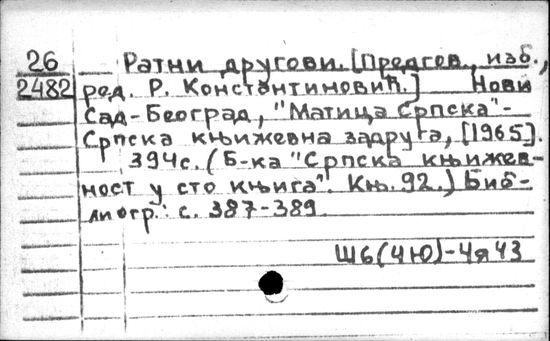 26 Ратни другови. [Предгов., изб.,
2482 ред. Р. Константиновић.] Нови
Сад-Београд, "Матица Српска"-
Српска књижевна задруга, [1965].
394с. (Б-ка "Српска књижев-
ност у сто књига". Књ. 92.) Биб-
лиогр.: с. 387-389.
Ш6(4Ю)-4я43